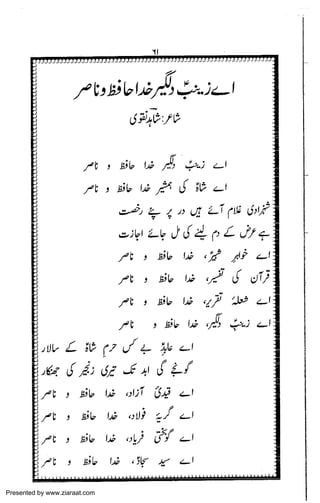 ۶۱
اے زینبؑ دلگیر خدا حافظ و ناصر
شاعر: شاہد نقوی
اے زینبؑ دلگیر خدا حافظ و ناصر
اے شاہؑ کی ہمشیر خدا حافظ و ناصر
شہزادی غلام آئے ہیں در پر پئے رخصت
ہے عرض کے دم لینے کی دل چاہے اجازت
اے خواہرِ شبیرؑ، خدا حافظ و ناصر
قرآن کی تفسیر، خدا حافظ و ناصر
اے شعلۂ تقریر، خدا حافظ و ناصر
اے زینبؑ دلگیر، خدا حافظ و ناصر
اے عابدؑ بے کس حرم شاہؑ کے سالار
گونجے گی ابد تک تیری زنجیر کی جھنکار
اے قیدیٔ آزاد، خدا حافظ و ناصر
اے گریۂ فولاد، خدا حافظ و ناصر
اے گونجتی فریاد، خدا حافظ و ناصر
اے سید سجادؑ، خدا حافظ و ناصر
Presented by www.ziaraat.com